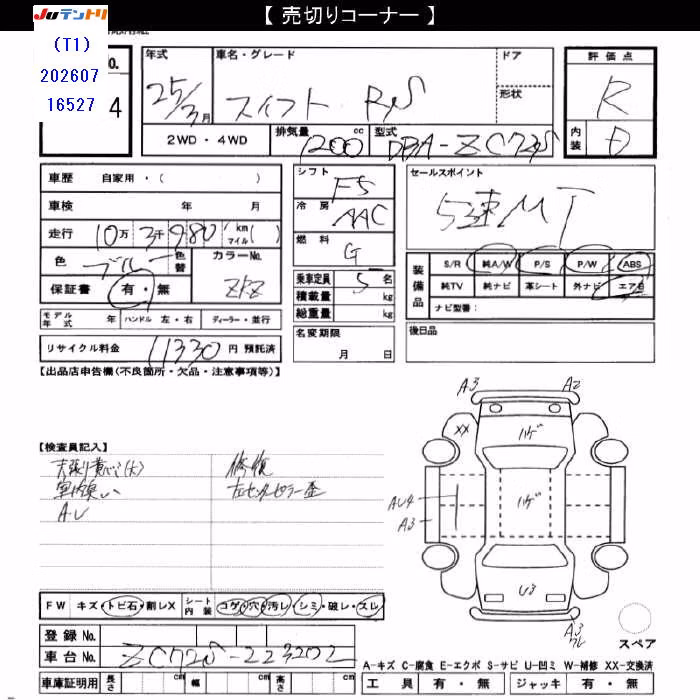 【 売切りコーナー 】
JUテントリ
(T1)
202607
16527
No.
4
年式
25/3月
車名・グレード
スイフト RS
ドア
形状
評価点
R
内装
D
2WD・4WD
排気量
1200 cc
型式
DBA-ZC72S
車歴 自家用・( )
車検 年 月
走行 10万 3千 980 km マイル( )
色 ブルー 色替
カラーNo. ZPZ
保証書 有・無
シフト F5
冷房 AAC
燃料 G
乗車定員 5 名
積載量 kg
総重量 kg
セールスポイント
5速MT
装備品
S/R 純A/W P/S P/W ABS
純TV 純ナビ 革シート 外ナビ エアB
ナビ型番:
モデル年式 年 ハンドル 左・右 ディーラー・並行
名変期限
月 日
後日品
リサイクル料金 11330 円 預託済
【出品店申告欄(不良箇所・欠品・注意事項等)】
A3 A2
XX ハゲ
【検査員記入】
天張り 修復
室内臭い 左センターピラー歪
AU
ハゲ
AU4
A3
U3
FW キズ・トビ石・割レX シート内装 コゲ・穴・汚レ・シミ・破レ・スレ
A3
ワレ
スペア
登録 No.
車台 No. ZC72S-223202
A-キズ C-腐食 E-エクボ S-サビ U-凹ミ W-補修 XX-交換済
車庫証明用 長さ cm 幅 cm 高さ cm
工具 有・無 ジャッキ 有・無